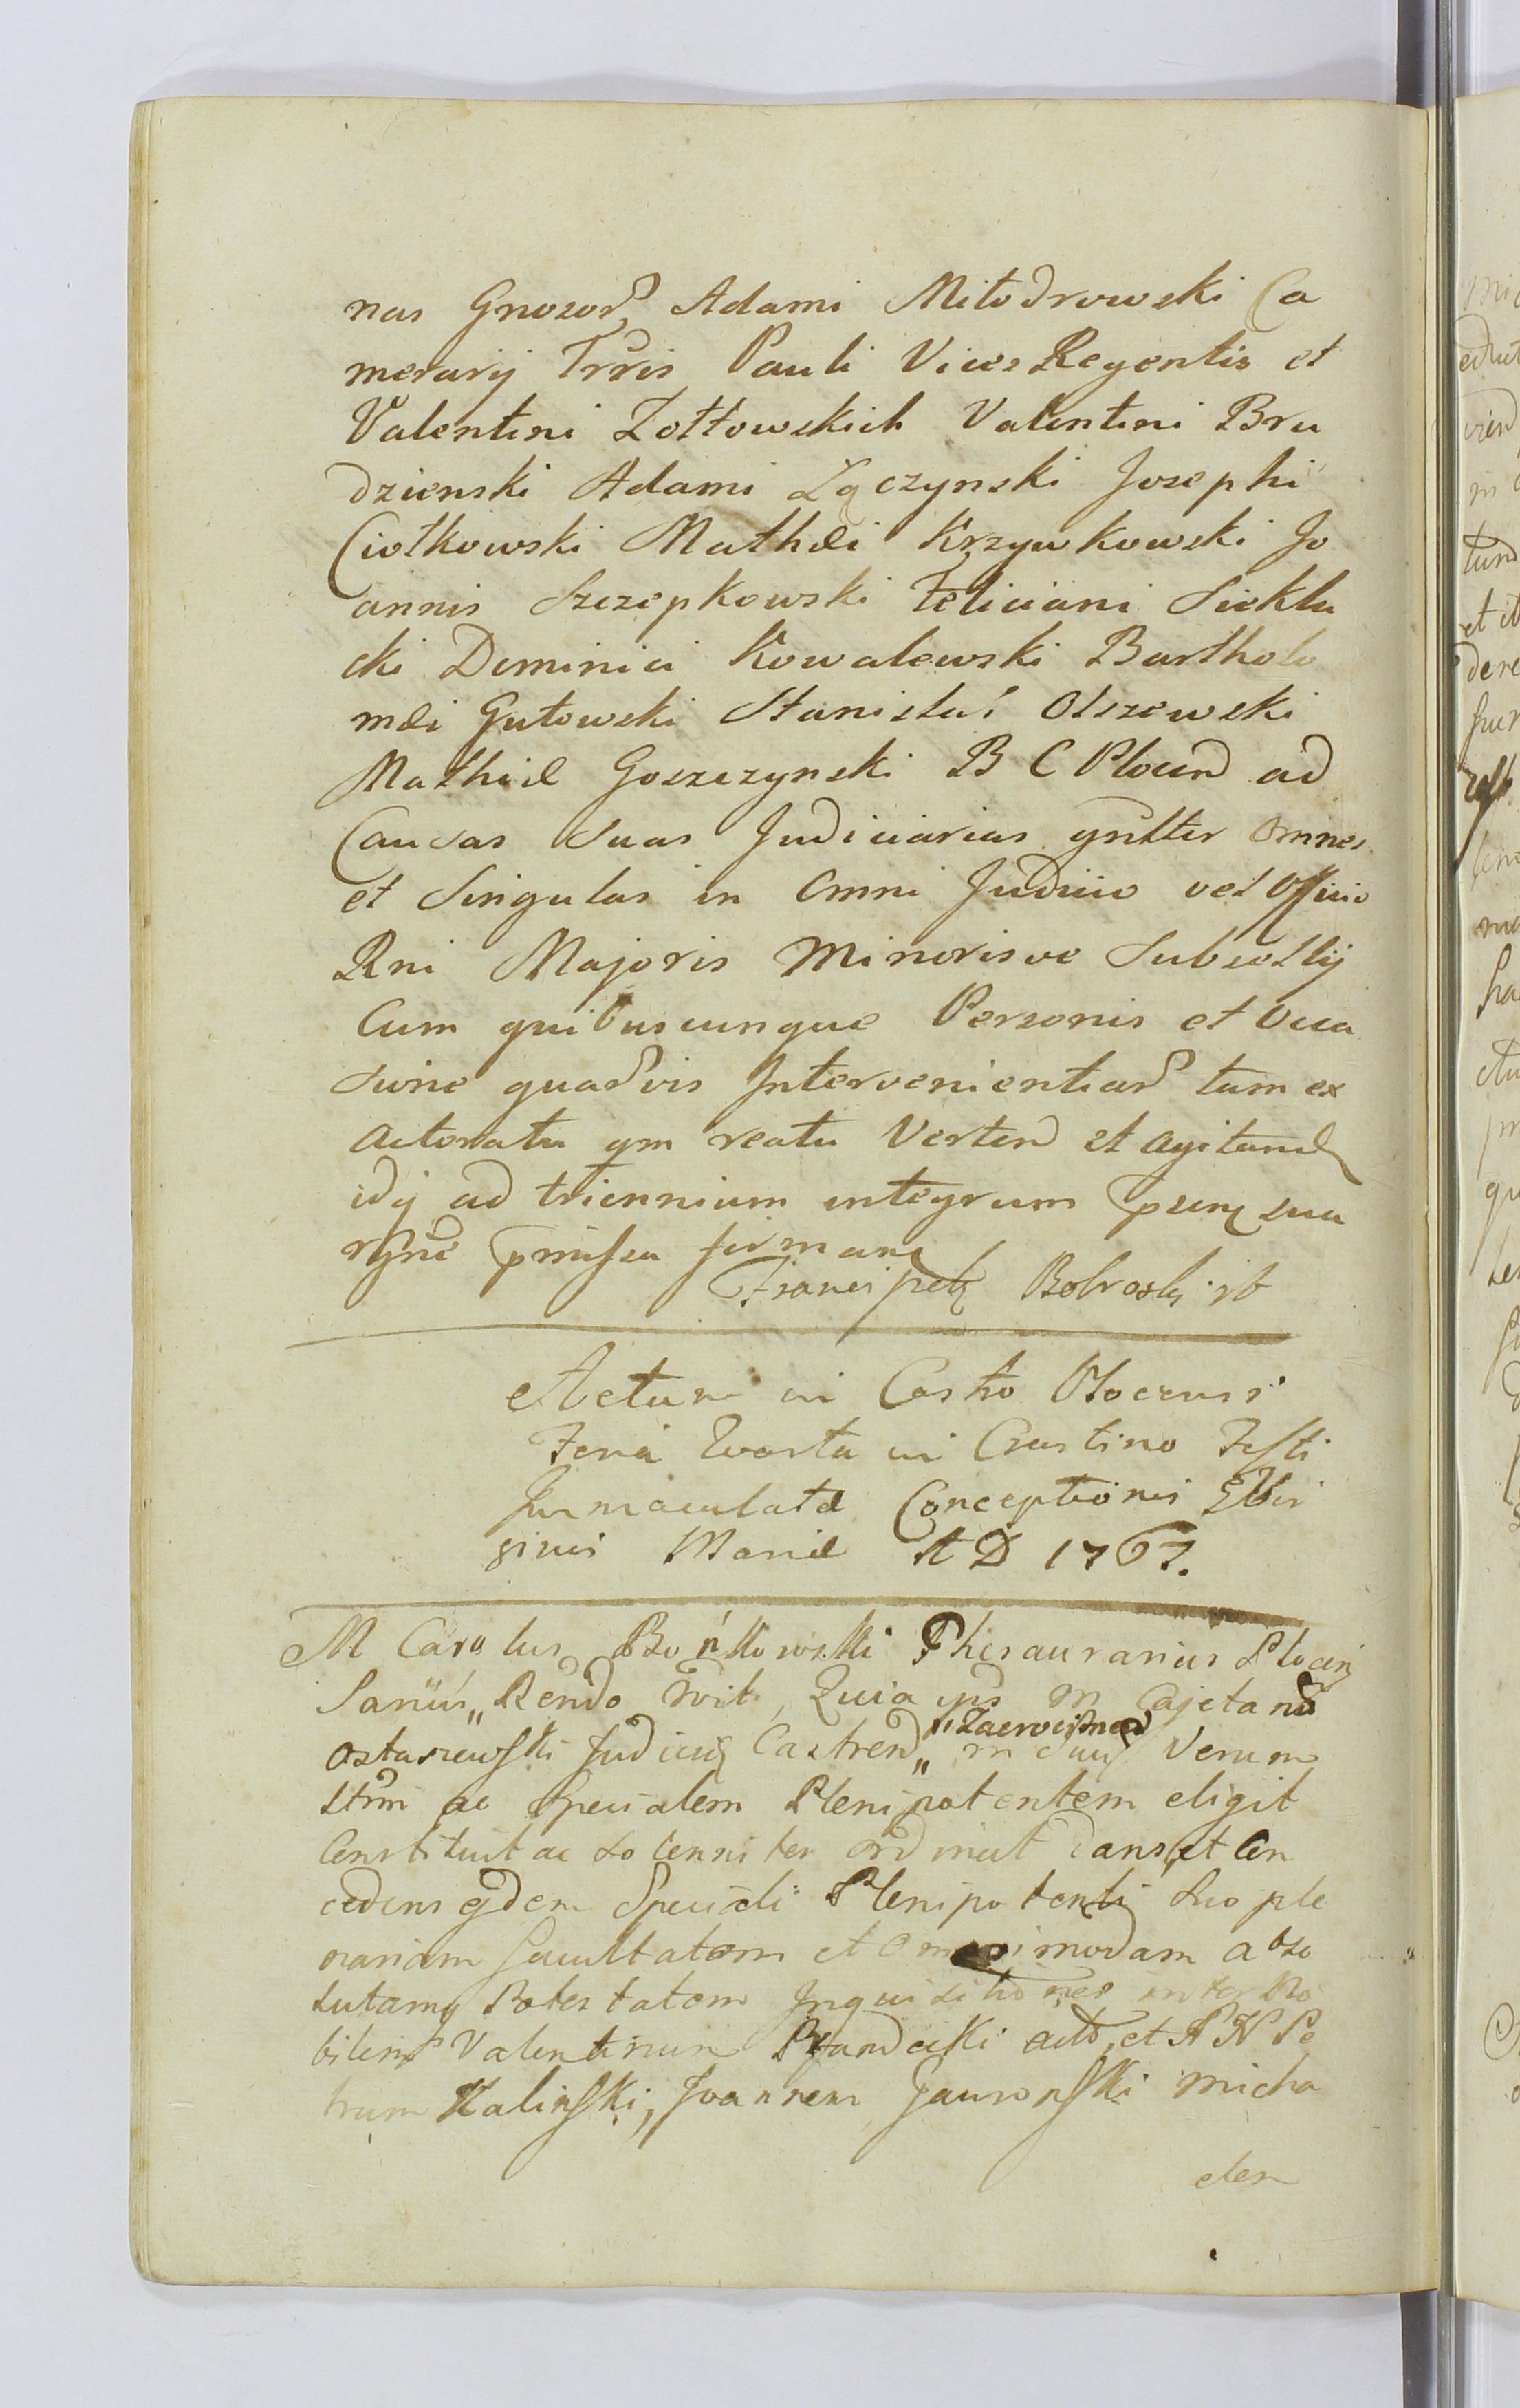 nas Gnosor Adami Miłodrowski Ca
merarij Trris Pauli Vices Regentis et
Valentini Zołtowskich Valentini Bru
dzienski Adami Łączynski Josephi
Ciołkowski Mathæi Krzywkowski Jo
annis Szczepkowski Feliciani Sieklu
cki Dominici Kowalewski Bartholo
mæi Gutowski Stanislai Olszewski
Mathiæ Goszczynski B C Plocen ad
Causas suas Judiciarias gnlter omnes
et Singulas in Omni Judicio vel Officio
Rni Majoris Minorisve Subsellij
Cum quibuscunque Personis et Occa
sione quarvis Intervenientiar tam ex
Actoratu qm reatu Verten et agitand
idq ad triennium integrum psens sua
rgne pmissa firman
Bobroski
Actum in Castro Plocensi
Feria Quarta in Crastino Festi
Immaculatæ Conceptionis BVir
ginis Mariæ A D 1767.
M Carolus Bońkowski Thesaurarius Plocen
Saniis Rendo Quia ips M Cajetanu
"Zacroczimen
Ostaszewski Judicem Castren" in suu Verum
Lttm ac Specialem Plenipotentem eligit
Constituit ac solenniter ordinat dans et Con
cedens eidem Speciali Plenipotenti suo ple
nariam facultatem et omnimodam abso
lutamq Potestatem Inquisitiones inter No
bilem Valentinum act et N N Pe
trum Kalinski, Joannem Gawonski Micha
elem